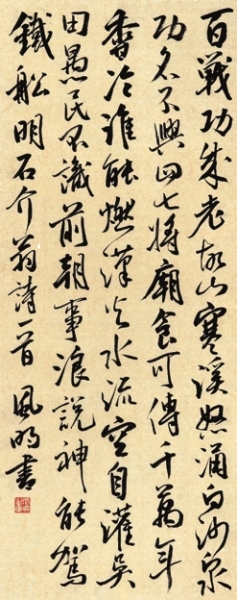 百戰功成老故山寒溪怒涌白沙泉
功名不與四七將廟食可傳千萬年
香冷誰能燃漢火水流空自灌吳
田愚民不識前朝事浪說神能駕
鐵船明石介翁詩一首風明書